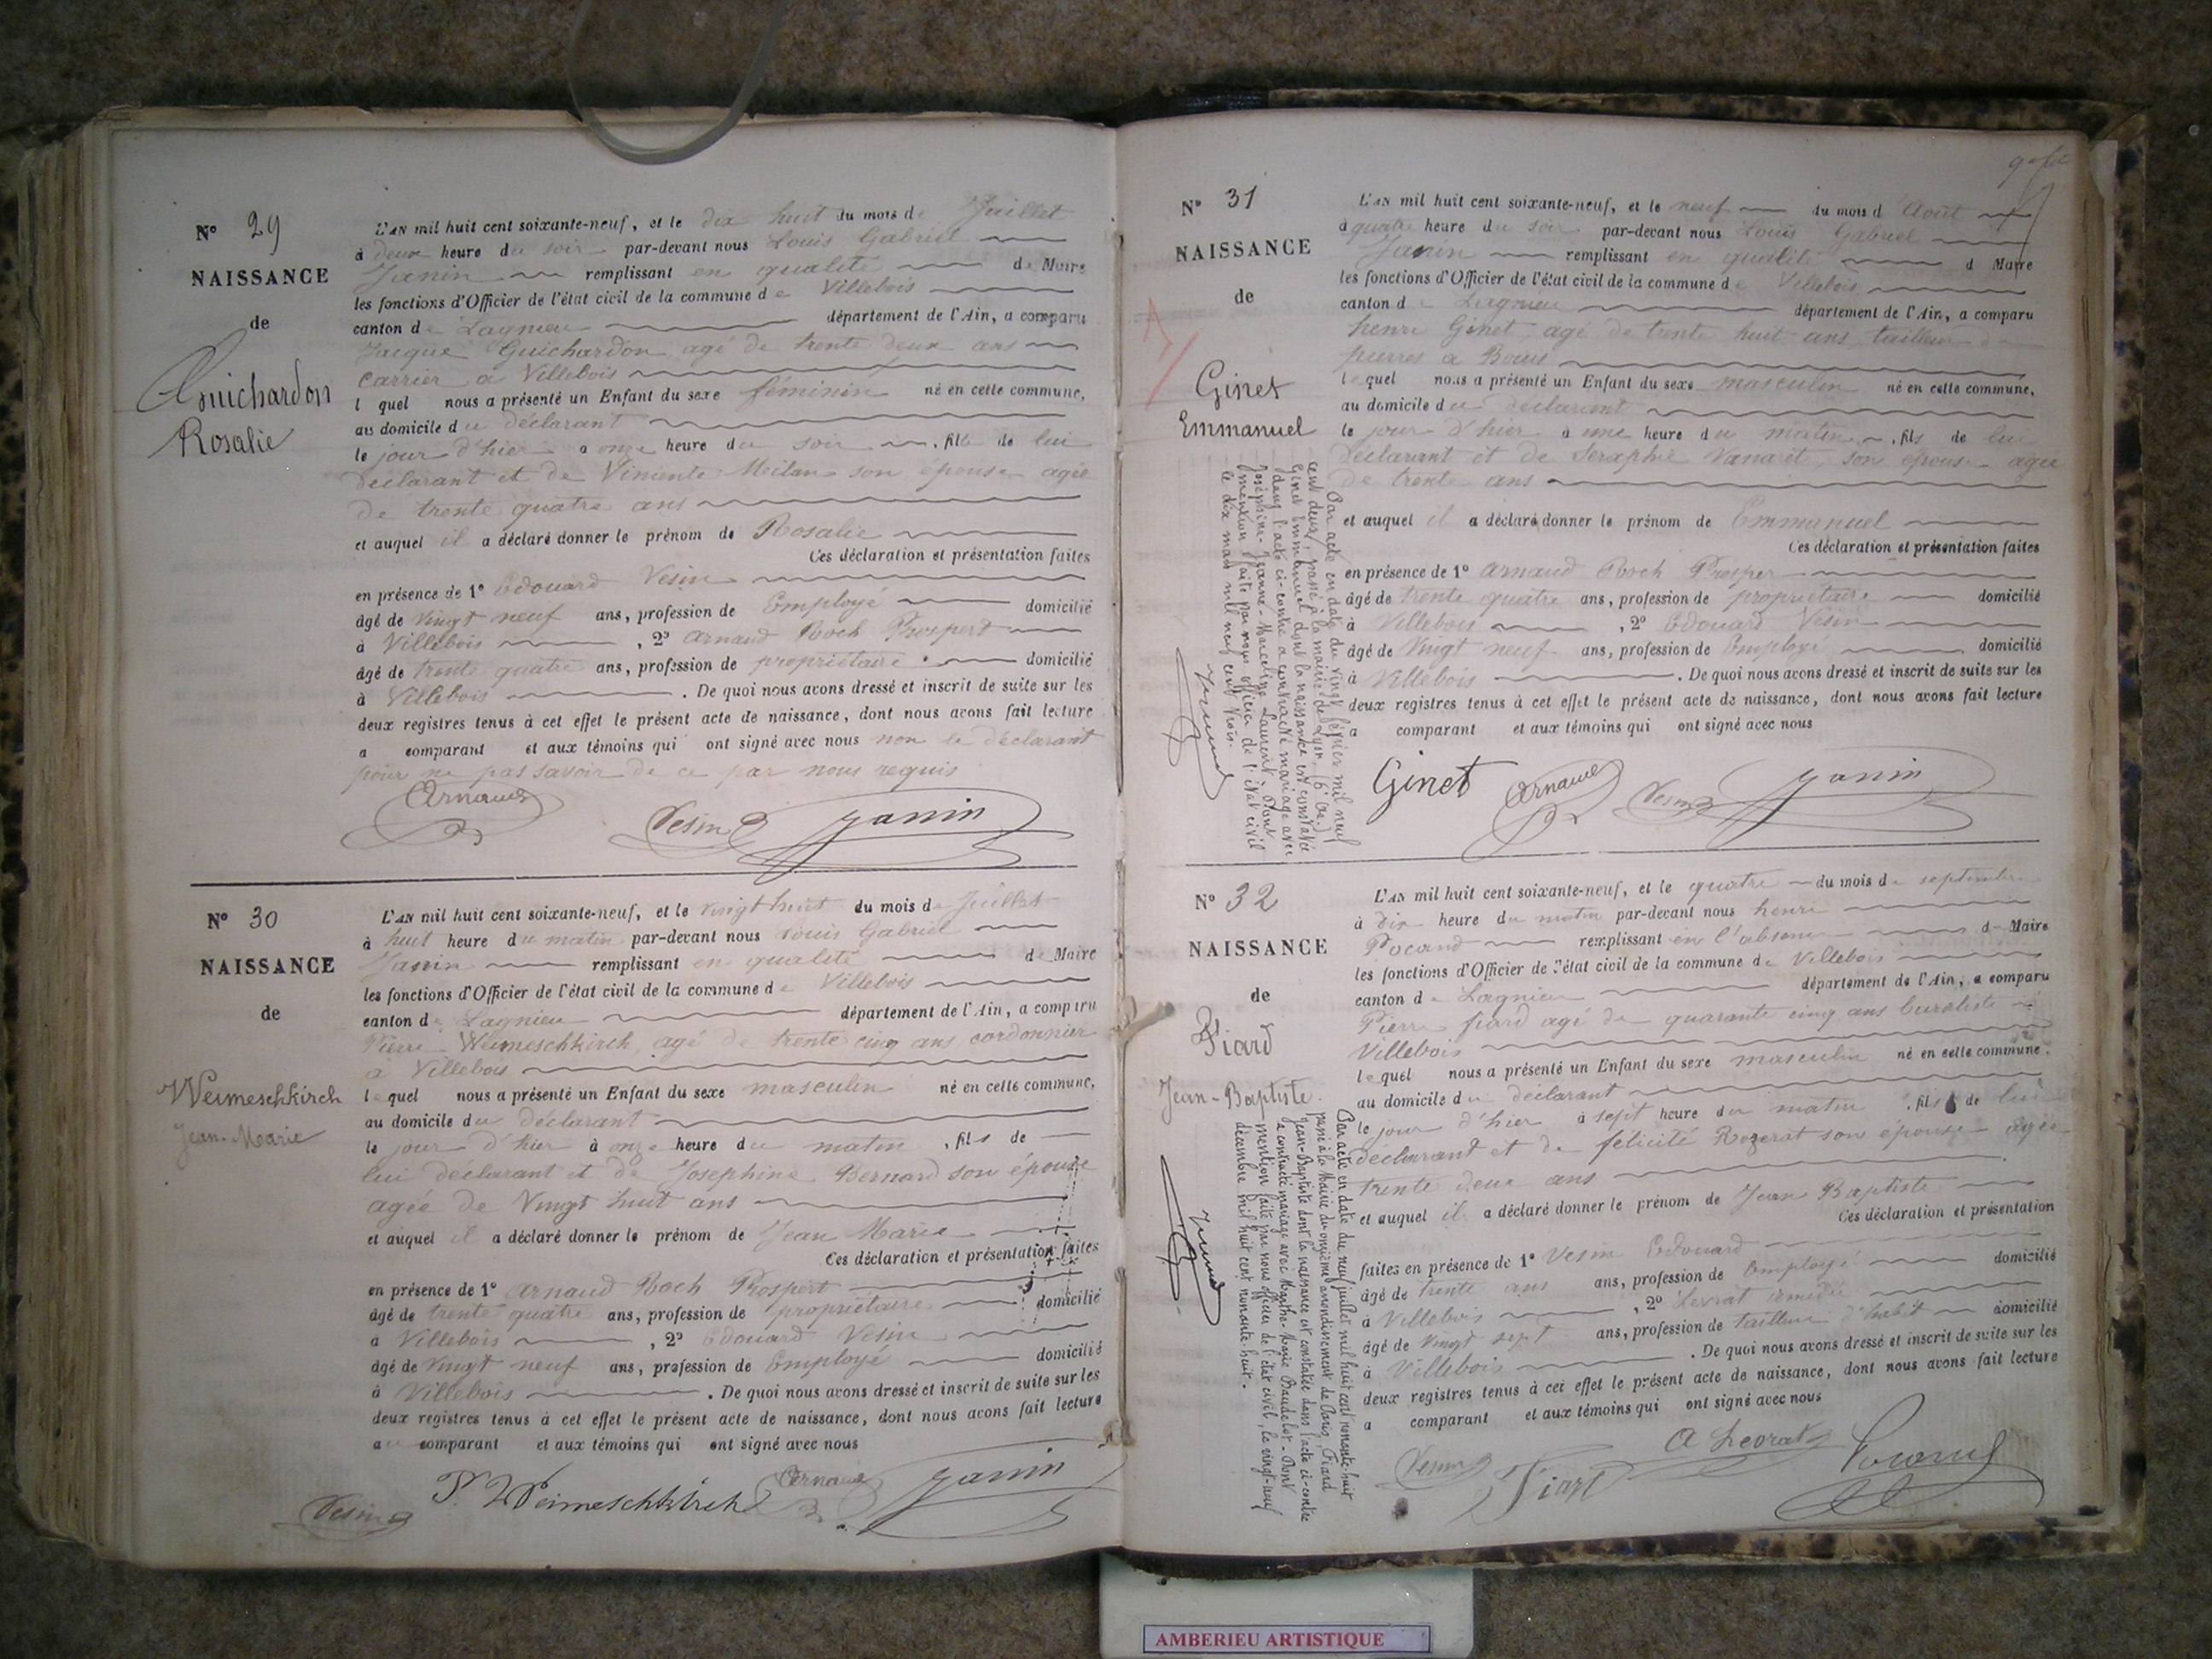 N° 29
NAISSANCE
de
Guichardon
Rosalie
L'AN mil huit cent soixante-neuf, et le dix huit du mois de Juillet
à deux heure du soir par-devant nous Louis Gabriel
Janin remplissant en qualité de Maire
les fonctions d'Officier de l'état civil de la commune de Villebois
canton de Lagnieu département de l'Ain, a comparu
Jacque Guichardon agé de trente deux ans
carrier a Villebois
l quel nous a présenté un Enfant du sexe féminin né en cette commune,
au domicile du déclarant
le jour d'hier a onze heure du soir , fille de lui
déclarant et de Vincente Meilan son épouse agée
de trente quatre ans
et auquel il a déclaré donner le prénom de Rosalie
Ces déclaration et présentation faites
en présence de 1° Edouard Vesin
âgé de vingt neuf ans, profession de Employé domicilié
à Villebois , 2° Arnaud Roch Prospert
âgé de trente quatre ans, profession de propriétaire domicilié
à Villebois . De quoi nous avons dressé et inscrit de suite sur les
deux registres tenus à cet effet le présent acte de naissance, dont nous avons fait lecture
a comparant et aux témoins qui ont signé avec nous non le déclarant
pour ne pas savoir de ce par nous requis
Arnaud
Vesin Janin
N° 30
NAISSANCE
de
Weimeschkirch
Jean-Marie
L'AN mil huit cent soixante-neuf, et le vingt huit du mois de Juillet
à huit heure du matin par-devant nous Louis Gabriel
Janin remplissant en qualité de Maire
les fonctions d'Officier de l'état civil de la commune de Villebois
canton de Lagnieu département de l'Ain, a comparu
Pierre Weimeschkirch, agé de trente cinq ans cordonnier
a Villebois
lequel nous a présenté un Enfant du sexe masculin né en cette commune,
au domicile du déclarant
le jour d'hier à onze heure du matin , fils de
lui déclarant et de Josephine Bernard son épouse
agée de Vingt huit ans
et auquel il a déclaré donner le prénom de Jean Marie
Ces déclaration et présentation faites
en présence de 1° Arnaud Roch Prospert
âgé de trente quatre ans, profession de propriétaire domicilié
à Villebois , 2° Edouard Vesin
âgé de Vingt neuf ans, profession de Employé domicilié
à Villebois . De quoi nous avons dressé et inscrit de suite sur les
deux registres tenus à cet effet le présent acte de naissance, dont nous avons fait lecture
au comparant et aux témoins qui ont signé avec nous
Vesin P. Weimeschkirch Arnaud Janin
N° 31
NAISSANCE
de
Ginet
Emmanuel
L'AN mil huit cent soixante-neuf, et le neuf du mois d Août
à quatre heure du soir par-devant nous Louis Gabriel
Janin remplissant en qualité d Maire
les fonctions d'Officier de l'état civil de la commune de Villebois
canton de Lagnieu département de l'Ain, a comparu
henri Ginet agé de trente huit ans tailleur de
pierres a Bouis
lequel nous a présenté un Enfant du sexe masculin né en cette commune,
au domicile du déclarant
le jour d'hier à une heure du matin , fils de lui
déclarant et de Seraphie Vanaret, son épouse agée
de trente ans
et auquel il a déclaré donner le prénom de Emmanuel
Ces déclaration et présentation faites
en présence de 1° Arnaud Roch Prosper
âgé de trente quatre ans, profession de propriétaire domicilié
à Villebois , 2° Edouard Vesin
âgé de Vingt neuf ans, profession de Employé domicilié
à Villebois . De quoi nous avons dressé et inscrit de suite sur les
deux registres tenus à cet effet le présent acte de naissance, dont nous avons fait lecture
a comparant et aux témoins qui ont signé avec nous
Ginet Arnaud Vesin Janin
Par acte en date du vingt février mil neuf
cent deux, passé à la mairie de Lyon,
Ginet Emmanuel dont la naissance est constatée
dans l'acte ci-contre a contracté mariage avec
Joséphine-Jeanne-Marceline Laurent. Dont
mention faite par nous officier de l'état civil
le dix mars mil neuf cent trois.
N° 32
NAISSANCE
de
Piard
Jean-Baptiste
L'AN mil huit cent soixante-neuf, et le quatre du mois de septembre
à dix heure du matin par-devant nous henri
Pocand remplissant en l'absence d Maire
les fonctions d'Officier de l'état civil de la commune de Villebois
canton de Lagnieu département de l'Ain, a comparu
Pierre piard agé de quarante cinq ans buraliste
Villebois
lequel nous a présenté un Enfant du sexe masculin né en cette commune,
au domicile du déclarant
le jour d'hier à sept heure du matin , fils de lui
déclarant et de félicité Rozerat son épouse agée
trente deux ans
et auquel il a déclaré donner le prénom de Jean Baptiste
Ces déclaration et présentation
faites en présence de 1° Vesin Edouard
âgé de trente ans ans, profession de Employé domicilié
à Villebois , 2° Levrat amédée
âgé de vingt sept ans, profession de tailleur d'habit domicilié
à Villebois . De quoi nous avons dressé et inscrit de suite sur les
deux registres tenus à cet effet le présent acte de naissance, dont nous avons fait lecture
a comparant et aux témoins qui ont signé avec nous
Vesin Piard A Levrat Pocand
Par acte en date du neuf juillet mil huit cent nonante-huit
passé à la Mairie du onzième arrondissement de Paris, Piard
Jean-Baptiste dont la naissance est constatée dans l'acte ci-contre
a contracté mariage avec Marthe-Marie Baudelot. Dont
mention faite par nous officier de l'état civil, le vingt-neuf
décembre mil huit cent nonante-huit.
AMBERIEU ARTISTIQUE